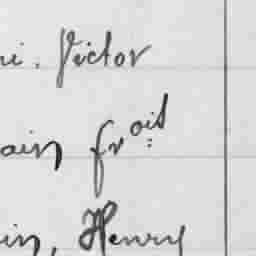 ni. Victor
ain frois
in, Henry